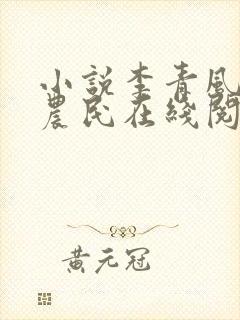 小說李青風
農民在綫閱
黃元冠